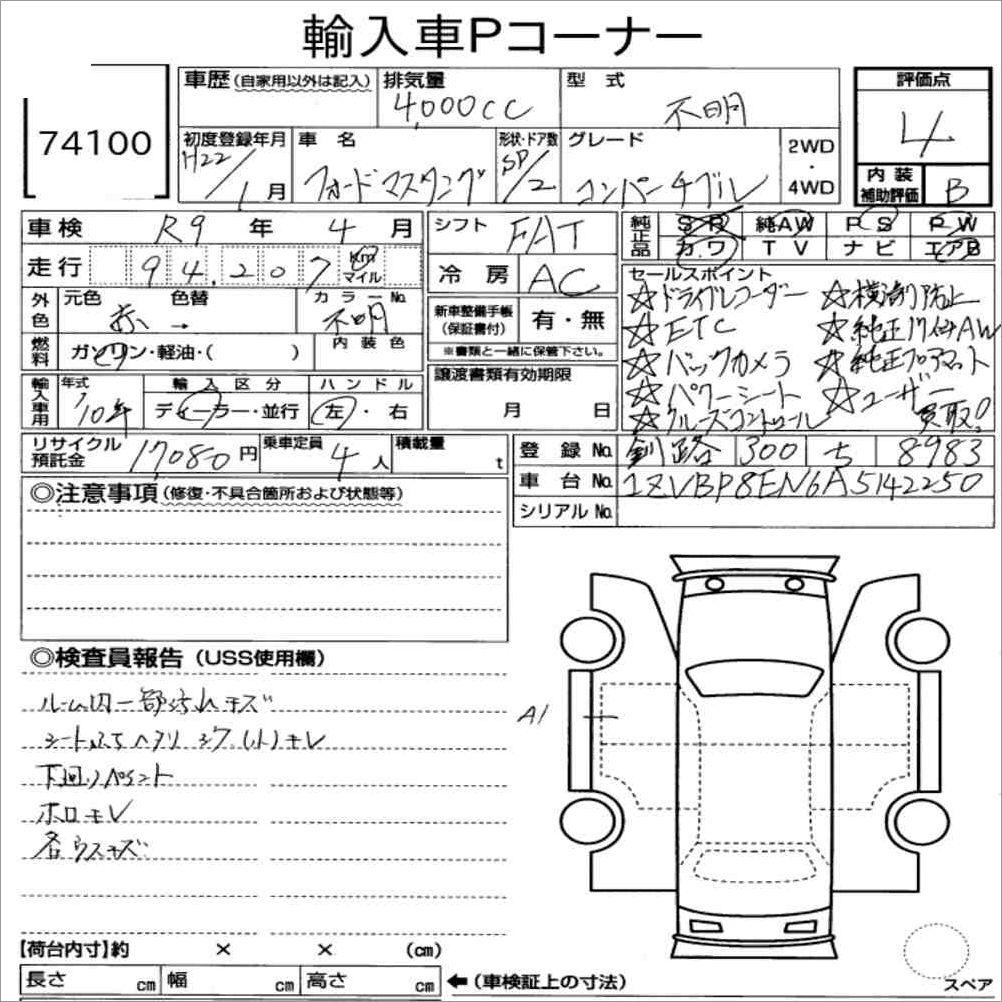 輸入車Pコーナー
74100
車歴(自家用以外は記入) 排気量 4,000cc 型式 不明 評価点 4
初度登録年月 H22/1月 車名 フォードマスタング 形状・ドア数 SP/2 グレード コンバーチブル 2WD・4WD 内装補助評価 B
車検 R9年4月 シフト FAT 純正品 SR 純AW PS PW
カワ TV ナビ エアB
走行 94,207 km マイル 冷房 AC
外色 元色 赤 色替 カラーNo. 不明
燃料 ガソリン・軽油・( ) 内装色
新車整備手帳(保証書付) 有・無
※書類と一緒に保管下さい。
輸入車用 年式 '10年 輸入区分 ディーラー・並行 ハンドル 左・右
譲渡書類有効期限 月 日
セールスポイント
☆ドライブレコーダー ☆横滑り防止
☆ETC ☆純正17インチAW
☆バックカメラ ☆純正フロアマット
☆パワーシート ☆ユーザー買取!
☆クルーズコントロール
リサイクル預託金 17,080円 乗車定員 4人 積載量 t
登録No. 釧路 300 ち 8983
車台No. 1ZVBP8EN6A5142250
シリアルNo.
◎注意事項(修復・不具合箇所および状態等)
◎検査員報告(USS使用欄)
ルーム内一部汚れキズ
シートふちヘタリ シワ(小)キレ
下回りペイント
ホロキレ
各ウスキズ
A1
【荷台内寸】約 × × (cm)
長さ cm 幅 cm 高さ cm ←(車検証上の寸法)
スペア